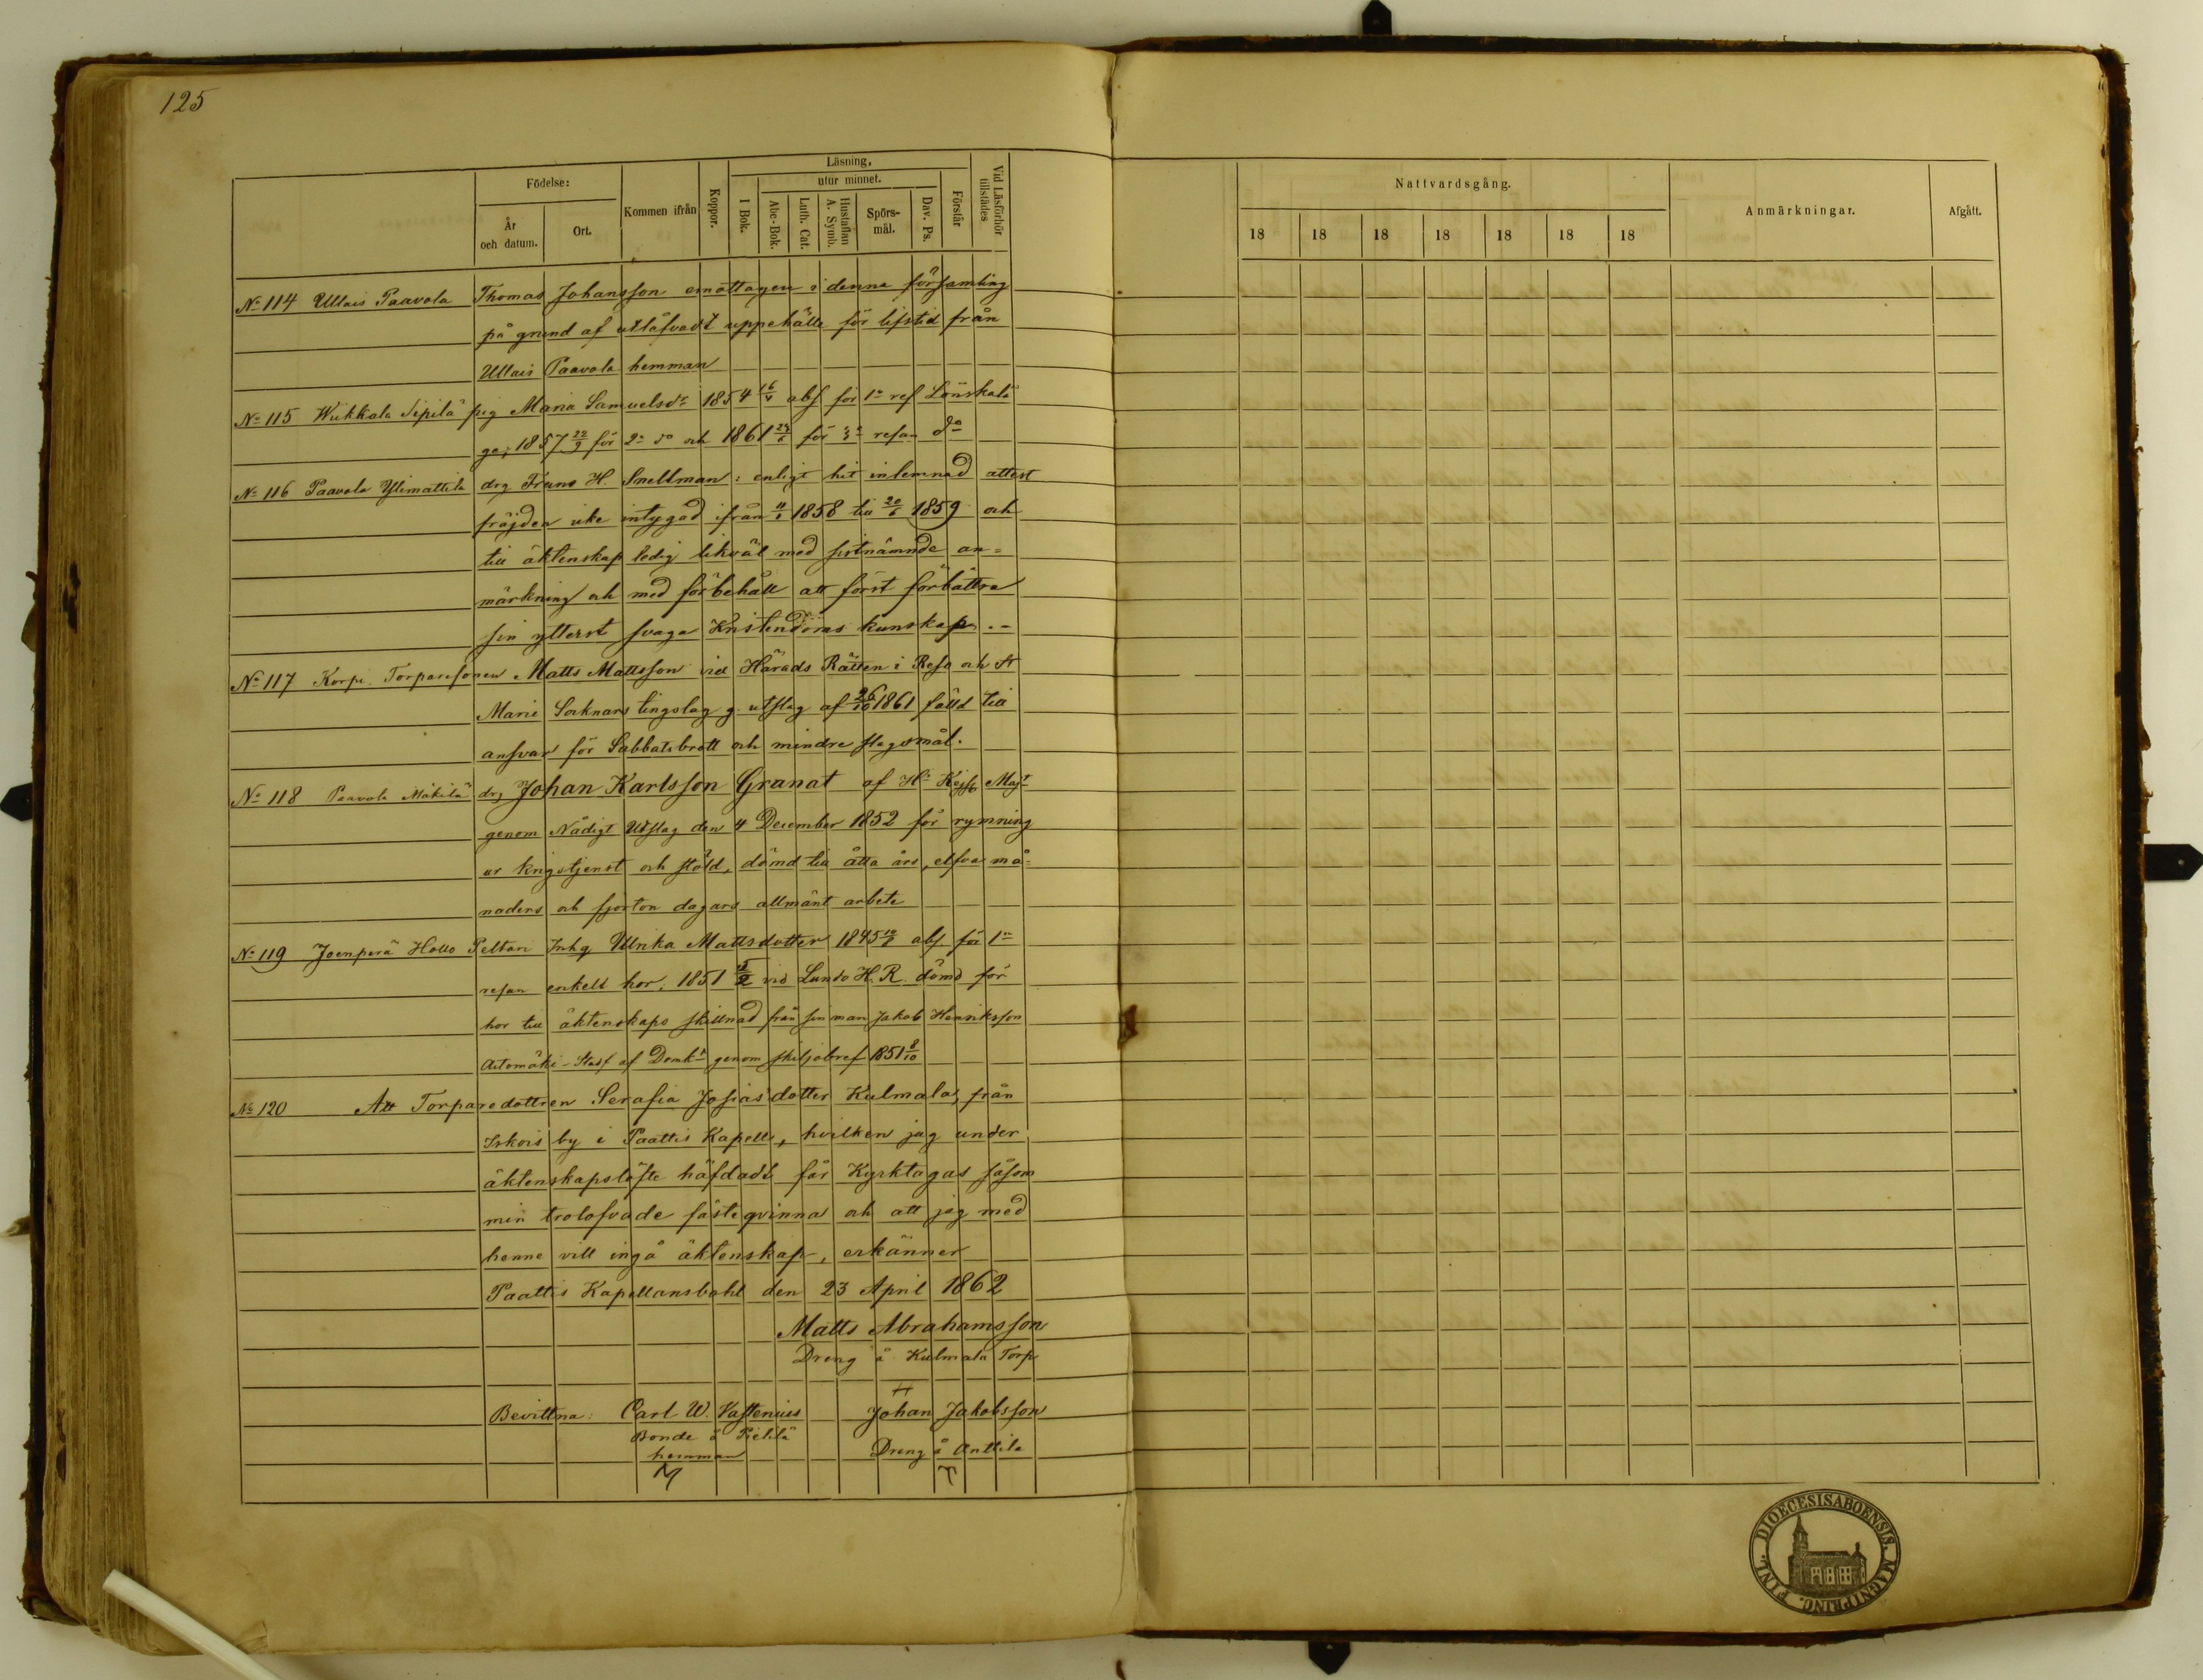 125
Födelse:
År och datum.
Ort.
Kommen ifrån
Koppor.
Läsning,
utur minnet.
I Bok.
Abc-Bok.
Luth. Cat.
Hustaflan A. Symb.
Spörs-mål.
Dav. Ps.
Förstår
Vid Läsförhör tillstädes
Nattvardsgång.
18 18 18 18 18 18 18
Anmärkningar.
Afgått.
No 114 Ullais Paavola Thomas Johansson emottagen i denna församling
på grund af utlåfvadt uppehälle för lifstid från
Ullais Paavola hemman
No 115 Wiikkala Sipilä pig Maria Samuelsdr 1854 16/4 abs för 1a ref Lönskalä
ge; 1857 22/9 för 2a do och 1861 23/6 för 3e resan do
No 116 Paavola Ylimattila drg Frans H. Snellman: enligt hit inlemnad attest
fräjden icke intygad ifrån 11/1 1858 till 20/6 1859 och
till äktenskap ledig likväl med sistnämnde an=
märkning och med förbehåll att först förbättra
sin ytterst svaga Kristendoms kunskap.-
No 117 Korpi Torparesonen Matts Mattsson vid Härads Rätten i Reso och St
Marie Socknars tingslag g. utslag af 26/10 1861 fälld till
ansvar för Sabbatsbrott och mindre slagsmål.
No 118 Paavola Mäkilä drg Johan Karlsson Granat af Hs Kejs Majt
genom Nådigt Utslag den 4 December 1852 för rymning
ur krigstjenst och stöld, dömd till åtta års, elfva må=
naders och fjorton dagars allmänt arbete
No 119 Joenperä Hollo Peltari Inhq Ulrika Mattsdotter 1845 10/8 abs för 1a
resan enkelt hor; 1851 vid Lundo H.R. dömd för
hor till äktenskaps skillnad från sin man Jakob Henriksson
Aitomäki - Stadf af Domkt genom skiljobref 1851 8/10
No 120 Att Torparedottren Serafia Josiasdotter Kulmala, från
Iskois by i Paattis Kapell, hvilken jag under
äktenskapslöfte häfdadt får Kyrktagas såsom
min trolofvade fästeqvinna och att jag med
henne vill ingå äktenskap, erkänner
Paattis Kapellansbohl den 23 April 1862
Matts Abrahamsson
Dreng å Kulmala Torp
Bevittna: Carl W. Vastenius Johan Jakobsson
Bonde å Pietilä Dreng å Anttila
hemman
FINL. DIOECESIS ABOENSIS. MAGNI PRINC.